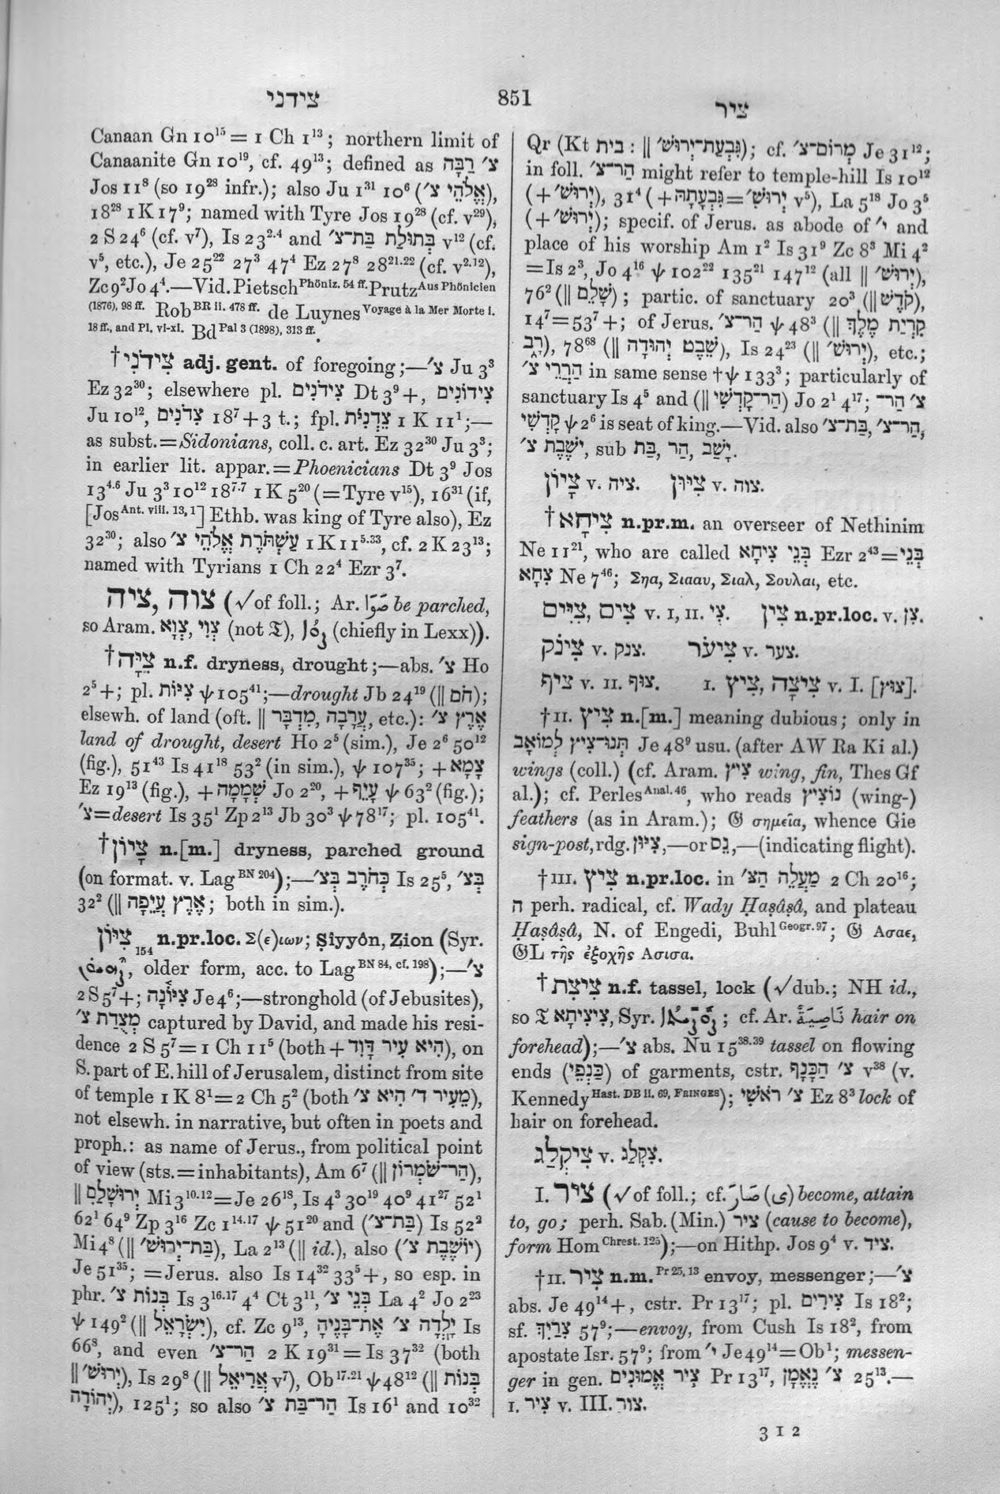 צידני
851
ציר
Canaan Gn 10¹⁵ = 1 Ch 1¹³; northern limit of
Canaanite Gn 10¹⁹, cf. 49¹³; defined as צ׳ רַבָּה
Jos 11⁸ (so 19²⁸ infr.); also Ju 1³¹ 10⁶ (אֱלֹהֵי צ׳),
18²⁸ 1 K 17⁹; named with Tyre Jos 19²⁸ (cf. v²⁹),
2 S 24⁶ (cf. v⁷), Is 23²·⁴ and בְּתוּלַת בַּת־צ׳ v¹² (cf.
v⁵, etc.), Je 25²² 27³ 47⁴ Ez 27⁸ 28²¹·²² (cf. v²·¹²),
Zc 9² Jo 4⁴.—Vid. Pietsch Phöniz. 54 ff. Prutz Aus Phönicien
(1876), 98 ff. Rob BR ii. 478 ff. de Luynes Voyage à la Mer Morte i.
18 ff., and Pl. vi-xi. Bd Pal 3 (1898), 313 ff.
†צִידֹנִי adj. gent. of foregoing;—צ׳ Ju 3³
Ez 32³⁰; elsewhere pl. צִידֹנִים Dt 3⁹+, צִידוֹנִים
Ju 10¹², צִדֹנִים 18⁷ + 3 t.; fpl. צֵדְנִיֹּת 1 K 11¹;—
as subst. = Sidonians, coll. c. art. Ez 32³⁰ Ju 3³;
in earlier lit. appar. = Phoenicians Dt 3⁹ Jos
13⁴·⁶ Ju 3³ 10¹² 18⁷·⁷ 1 K 5²⁰ (= Tyre v¹⁵), 16³¹ (if,
[Jos Ant. viii. 13, 1] Ethb. was king of Tyre also), Ez
32³⁰; also עַשְׁתֹּרֶת אֱלֹהֵי צ׳ 1 K 11⁵·³³, cf. 2 K 23¹³;
named with Tyrians 1 Ch 22⁴ Ezr 3⁷.
צוה, ציה (√ of foll.; Ar. be parched,
so Aram. (not 𝔗), (chiefly in Lexx)).
†צִיָּה n.f. dryness, drought;—abs. צ׳ Ho
2⁵+; pl. צִיּוֹת ψ 105⁴¹;—drought Jb 24¹⁹ (‖ חֹם);
elsewh. of land (oft. ‖ מִדְבָּר, עֲרָבָה, etc.): אֶרֶץ צ׳
land of drought, desert Ho 2⁵ (sim.), Je 2⁶ 50¹²
(fig.), 51⁴³ Is 41¹⁸ 53² (in sim.), ψ 107³⁵; + צָמָא
Ez 19¹³ (fig.), + שְׁמָמָה Jo 2²⁰, + עָיֵף ψ 63² (fig.);
צ׳ = desert Is 35¹ Zp 2¹³ Jb 30³ ψ 78¹⁷; pl. 105⁴¹.
†צָיוֹן n.[m.] dryness, parched ground
(on format. v. Lag BN 204);—כְּחֹרֶב בְּצ׳ Is 25⁵, בְּצ׳
32² (‖ אֶרֶץ עֲיֵפָה; both in sim.).
צִיּוֹן 154 n.pr.loc. Σ(ε)ιων; Ṣiyyôn, Zion (Syr.
older form, acc. to Lag BN 84, cf. 198);—צ׳
2 S 5⁷+; צִיּוֹנָה Je 4⁶;—stronghold (of Jebusites),
מְצֻדַת צ׳ captured by David, and made his resi-
dence 2 S 5⁷ = 1 Ch 11⁵ (both + הִיא עִיר דָּוִד), on
S. part of E. hill of Jerusalem, distinct from site
of temple 1 K 8¹ = 2 Ch 5² (both מֵעִיר ד׳ הִיא צ׳),
not elsewh. in narrative, but often in poets and
proph.: as name of Jerus., from political point
of view (sts. = inhabitants), Am 6⁷ (‖ הַר־שֹׁמְרוֹן),
‖ יְרוּשָׁלַם Mi 3¹⁰·¹² = Je 26¹⁸, Is 4³ 30¹⁹ 40⁹ 41²⁷ 52¹
62¹ 64⁹ Zp 3¹⁶ Zc 1¹⁴·¹⁷ ψ 51²⁰ and (בַּת־צ׳) Is 52²
Mi 4⁸ (‖ בַּת־יְרוּשׁ׳), La 2¹³ (‖ id.), also (יוֹשֶׁבֶת צ׳)
Je 51³⁵; = Jerus. also Is 14³² 33⁵+, so esp. in
phr. בְּנוֹת צ׳ Is 3¹⁶·¹⁷ 4⁴ Ct 3¹¹, בְּנֵי צ׳ La 4² Jo 2²³
ψ 149² (‖ יִשְׂרָאֵל), cf. Zc 9¹³, יָלְדָה צ׳ אֶת־בָּנֶיהָ Is
66⁸, and even הַר־צ׳ 2 K 19³¹ = Is 37³² (both
‖ יְרוּשׁ׳), Is 29⁸ (‖ אֲרִיאֵל v⁷), Ob¹⁷·²¹ ψ 48¹² (‖ בְּנוֹת
יְהוּדָה), 125¹; so also הַר־בַּת צ׳ Is 16¹ and 10³²
Qr (Kt בית: ‖ גִּבְעַת־יְרוּשׁ׳); cf. מְרוֹם־צ׳ Je 31¹²;
in foll. הַר־צ׳ might refer to temple-hill Is 10¹²
(+ יְרוּשׁ׳), 31⁴ (+ גִּבְעָתָהּ = יְרוּשׁ׳ v⁵), La 5¹⁸ Jo 3⁵
(+ יְרוּשׁ׳); specif. of Jerus. as abode of י׳ and
place of his worship Am 1² Is 31⁹ Zc 8³ Mi 4²
= Is 2³, Jo 4¹⁶ ψ 102²² 135²¹ 147¹² (all ‖ יְרוּשׁ׳),
76² (‖ שָׁלֵם); partic. of sanctuary 20³ (‖ קֹדֶשׁ),
14⁷ = 53⁷+; of Jerus. הַר־צ׳ ψ 48³ (‖ קִרְיַת מֶלֶךְ
רָב), 78⁶⁸ (‖ שֵׁבֶט יְהוּדָה), Is 24²³ (‖ יְרוּשׁ׳), etc.;
הַרְרֵי צ׳ in same sense † ψ 133³; particularly of
sanctuary Is 4⁵ and (‖ הַר־קָדְשִׁי) Jo 2¹ 4¹⁷; צ׳ הַר־
קָדְשִׁי ψ 2⁶ is seat of king.—Vid. also הַר־צ׳, בַּת־צ׳,
ישֶׁבֶת צ׳, sub יָשַׁב, הַר, בַּת.
צָיוֹן v. ציה. צִיּוּן v. צוה.
†צִיחָא n.pr.m. an overseer of Nethinim
Ne 11²¹, who are called בְּנֵי צִיחָא Ezr 2⁴³ = בְּנֵי
צִחָא Ne 7⁴⁶; Σηα, Σιααυ, Σιαλ, Σουλαι, etc.
צִיִּים, צִים v. I, II. צִי. צִין n.pr.loc. v. צִן.
צִינֹק v. צנק. צִיעֹר v. צער.
ציף v. II. צוּף. I. צִיץ, צִיצָה v. I. [צוּץ].
†II. צִיץ n.[m.] meaning dubious; only in
תְּנוּ־צִיץ לְמוֹאָב Je 48⁹ usu. (after AW Ra Ki al.)
wings (coll.) (cf. Aram. צִיץ wing, fin, Thes Gf
al.); cf. Perles Anal. 46, who reads נוֹצִיץ (wing-)
feathers (as in Aram.); 𝔊 σημεῖα, whence Gie
sign-post, rdg. צִיּוּן,—or נֵס,—(indicating flight).
†III. צִיץ n.pr.loc. in מַעֲלֵה הַצּ׳ 2 Ch 20¹⁶;
ה perh. radical, cf. Wady Ḥaṣâṣâ, and plateau
Ḥaṣâṣâ, N. of Engedi, Buhl Geogr. 97; 𝔊 Ασαε,
𝔊L τῆς ἐξοχῆς Ασισα.
†צִיצִת n.f. tassel, lock (√ dub.; NH id.,
so 𝔗 צִיצִיתָא, Syr. ; cf. Ar. نَاصِيَة hair on
forehead);—צ׳ abs. Nu 15³⁸·³⁹ tassel on flowing
ends (כַּנְפֵי) of garments, cstr. צ׳ הַכָּנָף v³⁸ (v.
Kennedy Hast. DB ii. 69, Fringes); צ׳ רֹאשִׁי Ez 8³ lock of
hair on forehead.
צִיקְלַג v. צִקְלַג.
I. ציר (√ of foll.; cf. صَارَ (ى) become, attain
to, go; perh. Sab. (Min.) ציר (cause to become),
form Hom Chrest. 125);—on Hithp. Jos 9⁴ v. ציד.
†II. צִיר n.m. Pr 25, 13 envoy, messenger;—צ׳
abs. Je 49¹⁴+, cstr. Pr 13¹⁷; pl. צִירִים Is 18²;
sf. צִרַיִךְ 57⁹;—envoy, from Cush Is 18², from
apostate Isr. 57⁹; from י׳ Je 49¹⁴ = Ob¹; messen-
ger in gen. צִיר אֱמוּנִים Pr 13¹⁷, צ׳ נֶאֱמָן 25¹³.—
I. צִיר v. III. צור.
3 I 2